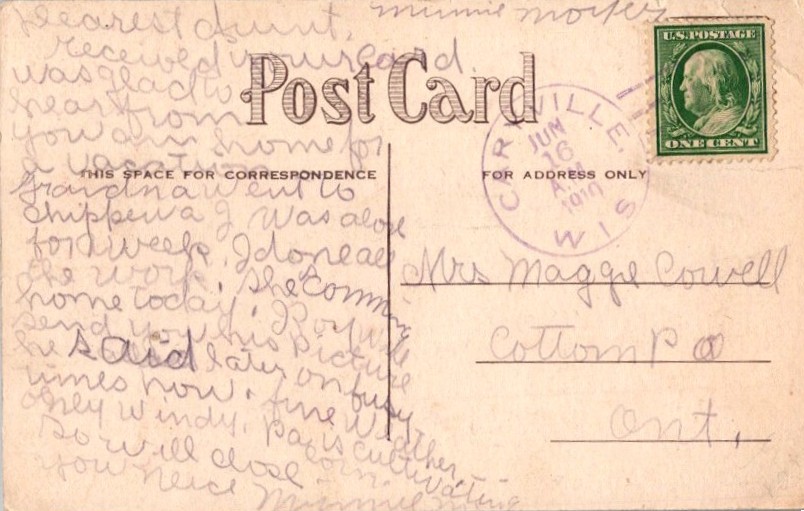 Dearest Aunt,
received your card.
was glad to
hear from
you am home for
a vacation
Grandma went to
Chippewa I was alone
for a week. I done all
the work. She comming
home today. Roy will
send you his picture
he said later on busy
times now. fine weather
only windy. Pa is cultivating
corn.
so will close
your neice Minnie
Minnie
Post Card
THIS SPACE FOR CORRESPONDENCE
FOR ADDRESS ONLY
CARYVILLE, WIS
JUN
16
A.M.
1910
U.S. POSTAGE
ONE CENT
Mrs Maggie Cowell
Cottom P O
Ont,